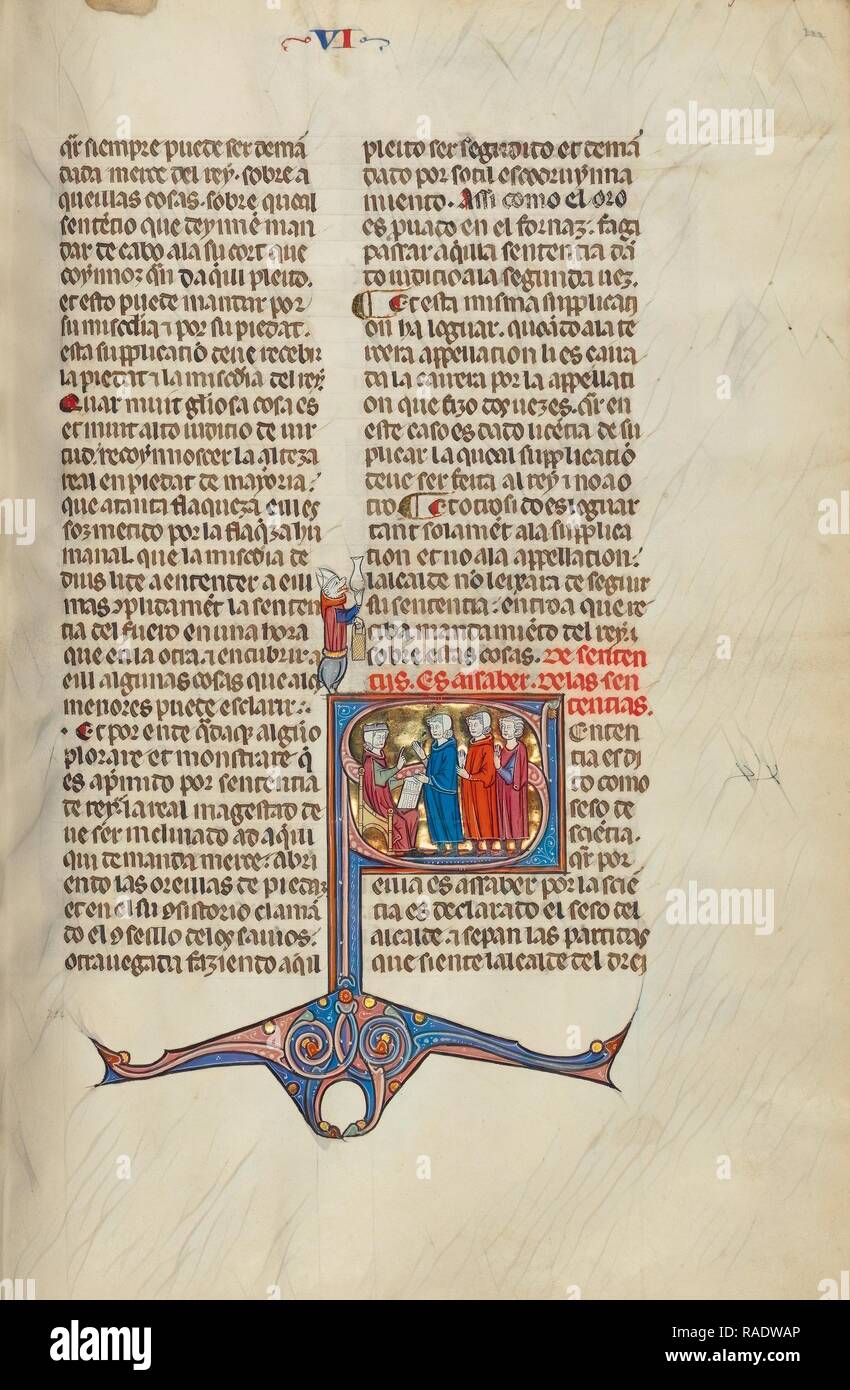 VI
qr siempre puede ser demā
dada merce del rey. sobre a
queillas cosas. sobre queal
sentēcio que deyn̄mē man
dar de cabo ala su cort que
et esto puede mandar por
su miscdia ⁊ por su piedat.
esta supplicatiō deue recebir
la piedat ⁊ la miscdia del rey
Quar muit gliosa cosa es
et muit alto iudicio de uir
tud. recoynnoscer la alteza
real en piedat de mayoria.
que atanta flaqueza eill es
sozmetido por la flaq̄za hu
manal. que la miscdia de
dius li de a entender a eill
mas ꝯplidamēt la senten
cia del fuero en una hora
que en la otra. ⁊ encubrir. a
eill algunas cosas que alo
menores puede esclarir.
Et por ende q̄da q̄ alguō
plorare et monstrare q̄
es apmido por sententia
de rey. la real magestad de
ue ser inclinado ad aq̄ui
qui demanda merce. abri
endo las oreillas de piedat
et en el su ꝯsistorio clamā
do el ꝯseillo delos sauios.
otra uegada faziendo aqīl
pleito ser seguidito et demā
dado por sotil escodruynna
miento. Assi como el oro
es p̄uado en el fornaz. faga
passar aq̄illa sentencia dā
do iudicio ala segunda uez.
Et esta misma supplicati
on ha loguar. quando ala te
rcera appellation li es çarra
da la carrera por la appellati
on que fizo dos uezes. qr en
este caso es dado licēcia de su
plicar la queal supplicatiō
deue ser feita al rey ⁊ no a o
tro Et otrosi do es loguar
tant solamēt ala supplica
tion et no ala appellation.
lalcalde no leixara de seguir
su sentencia. entroa que re
ciba mandamiēto del rey.
sobre estas cosas. De senten
tiis. Es assaber. Delas sen
tentias.
Senten
tia es di
to como
seso de
sciētia.
qr por
eilla es assaber por la sciē
tia es declarado el seso del
alcalde. ⁊ sepan las partidas
que siente lalcalde del drei
alamy
Image ID: RADWAP
www.alamy.com